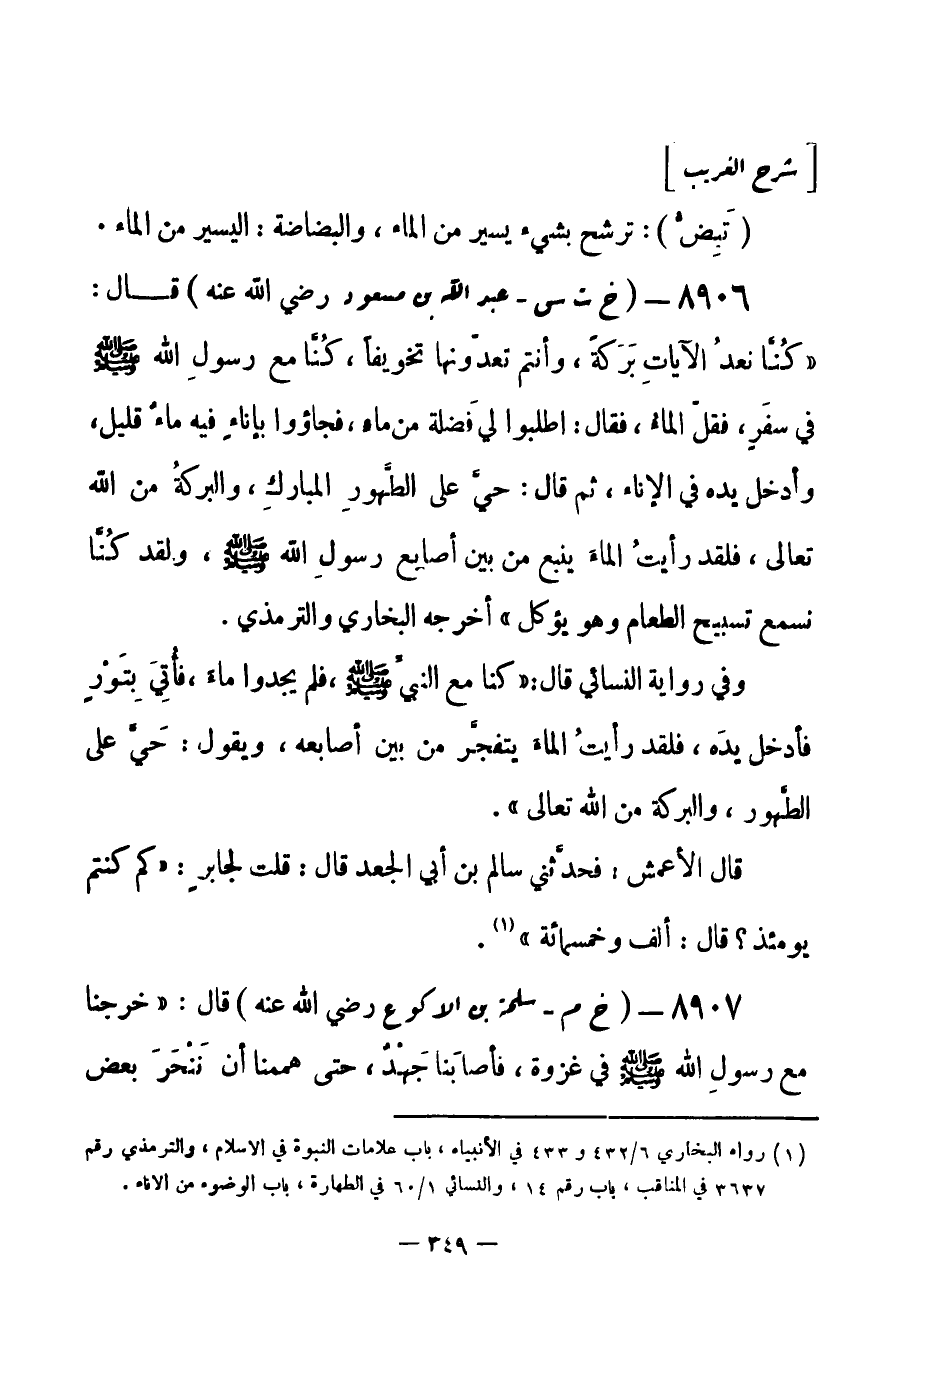 [ شرح الغريب ]
( تَبِضُّ ) : ترشح بشيء يسير من الماء ، والبضاضة : اليسير من الماء .
٨٩٠٦ — ( خ ت س - عبد الله بن مسعود رضي الله عنه ) قـــال :
« كُنَّا نعدُّ الآياتِ بَرَكةً ، وأنتم تعدّونها تخويفاً ، كُنَّا مع رسولِ الله ﷺ
في سفَرٍ ، فقلّ الماءُ ، فقال : اطلبوا لي فَضلة من ماء ، فجاؤوا بإناءٍ فيه ماءٌ قليل ،
وأدخل يده في الإناء ، ثم قال : حيَّ على الطَّهورِ المباركِ ، والبركةُ من الله
تعالى ، فلقد رأيتُ الماءَ ينبع من بين أصابع رسولِ الله ﷺ ، ولقد كُنَّا
نسمع تسبيح الطعام وهو يؤكل » أخرجه البخاري والترمذي .
وفي رواية النسائي قال : « كنا مع النبيِّ ﷺ ، فلم يجدوا ماءً ، فأُتِيَ بِتَوْرٍ
فأدخل يدَه ، فلقد رأيتُ الماءَ يتفجَّر من بين أصابعه ، ويقول : حَيَّ على
الطَّهور ، والبركة من الله تعالى » .
قال الأعمش : فحدَّثني سالم بن أبي الجعد قال : قلت لجابرٍ : « كم كنتم
يومئذ ؟ قال : ألف وخمسمائة »(١) .
٨٩٠٧ — ( خ م - سلمة بن الاكوع رضي الله عنه ) قال : « خرجنا
مع رسولِ الله ﷺ في غزوة ، فأصابَنا جَهْدٌ ، حتى هممنا أن نَنْحَرَ بعض
(١) رواه البخاري ٤٣٢/٦ و ٤٣٣ في الأنبياء ، باب علامات النبوة في الاسلام ، والترمذي رقم
٣٦٣٧ في المناقب ، باب رقم ١٤ ، والنسائي ٦٠/١ في الطهارة ، باب الوضوء من الاناء .
— ٣٤٩ —